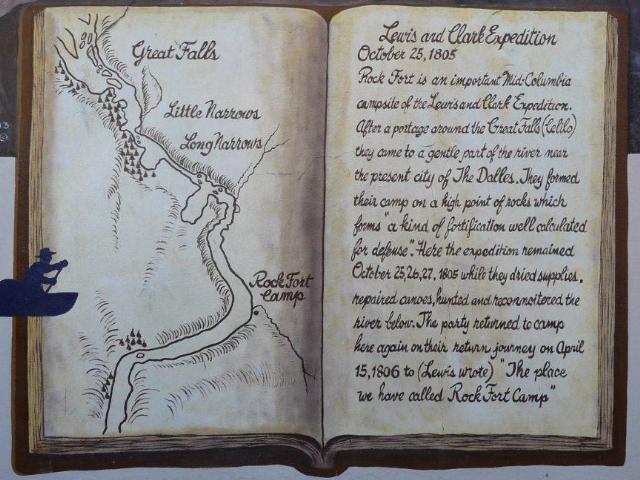 Great Falls
Little Narrows
Long Narrows
Rock Fort
Camp
Lewis and Clark Expedition
October 25, 1805
Rock Fort is an important Mid-Columbia
campsite of the Lewis and Clark Expedition.
After a portage around the Great Falls (Celilo)
they came to a gentle part of the river near
the present city of The Dalles. They formed
their camp on a high point of rocks which
forms "a kind of fortification well calculated
for defense". Here the expedition remained
October 25, 26, 27, 1805 while they dried supplies,
repaired canoes, hunted and reconnoitered the
river below. The party returned to camp
here again on their return journey on April
15, 1806 to (Lewis wrote) "The place
we have called Rock Fort Camp"